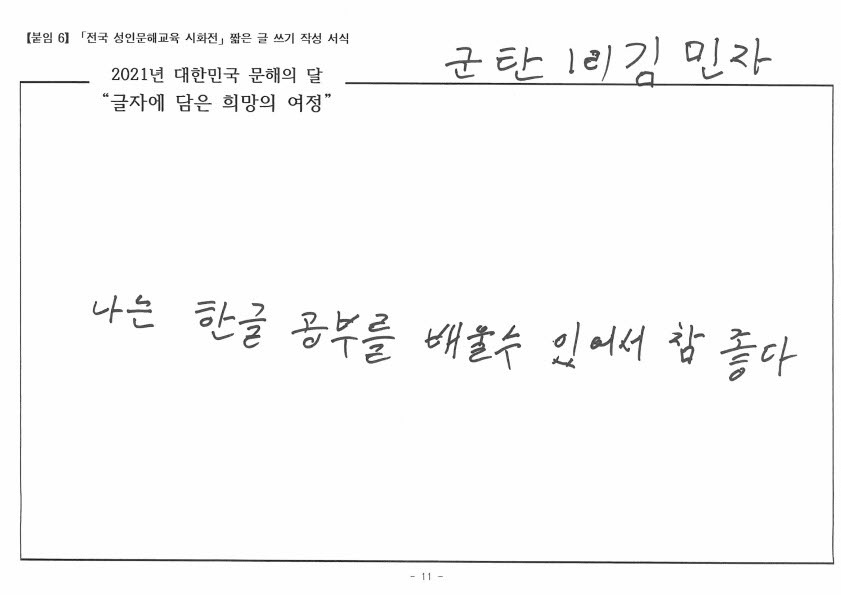 【붙임 6】「전국 성인문해교육 시화전」 짧은 글 쓰기 작성 서식
군탄 1리 김 민자
2021년 대한민국 문해의 달
“글자에 담은 희망의 여정”
나는 한글 공부를 배울수 있어서 참 좋다
- 11 -